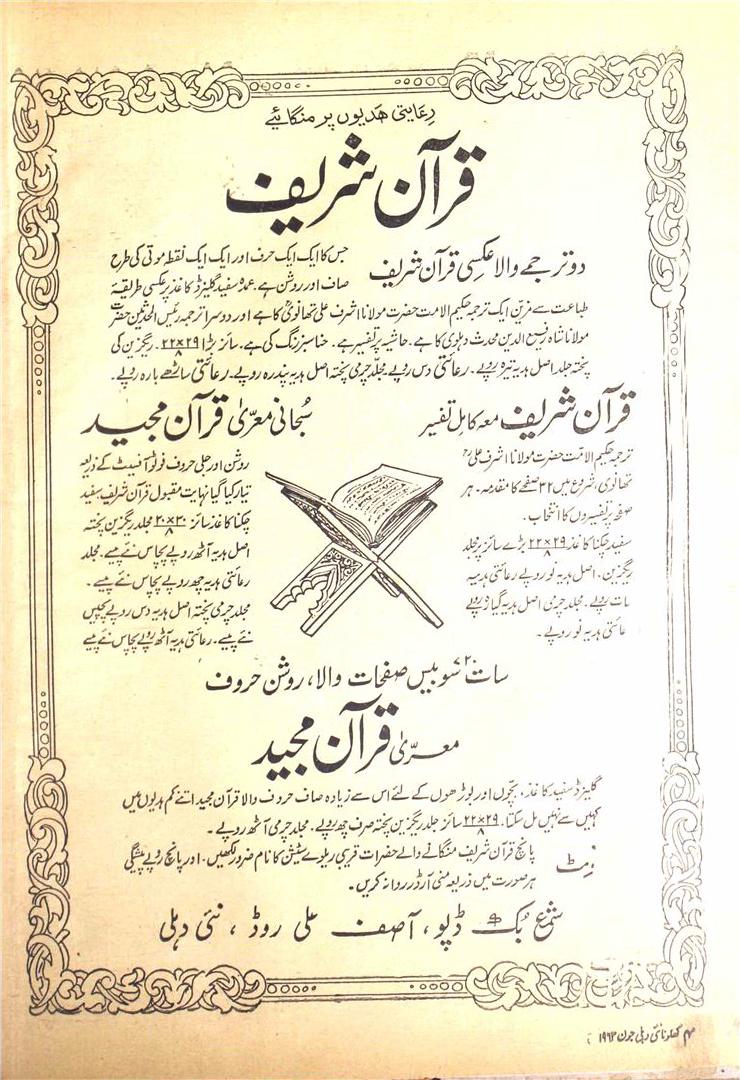 رعایتی ھدیوں پر منگائیے
قرآن شریف
دو ترجمے والا عکسی قرآن شریف
جس کا ایک ایک حرف اور ایک ایک نقطہ موتی کی طرح
صاف اور روشن ہے عمدہ سفید گلیزڈ کاغذ پر عکسی طریقۂ
طباعت سے مزین ایک ترجمہ حکیم الامت حضرت مولانا اشرف علی تھانویؒ کا ہے اور دوسرا ترجمہ رئیس المحدثین حضرت
مولانا شاہ رفیع الدین محدث دہلوی کا ہے۔ حاشیہ پر تفسیر ہے۔ حنا سبز رنگ کی ہے۔ سائز بڑا ۲۹×۲۲/۸ ۔ ریگزین کی
پختہ جلد اصل ہدیہ تیرہ روپے۔ رعائتی دس روپے مجلد چرمی پختہ اصل ہدیہ پندرہ روپے۔ رعائتی ساڑھے بارہ روپے۔
قرآن شریف معہ کامل تفسیر
ترجمہ حکیم الامت حضرت مولانا اشرف علیؒ
تھانوی، شروع میں ۳۲ صفحے کا مقدمہ۔ ہر
صفحہ پر تفسیروں کا انتخاب۔
سفید چکنا کاغذ ۲۹×۲۲/۸ بڑے سائز پر مجلد
ریگزین۔ اصل ہدیہ نو روپے رعائتی ہدیہ
سات روپے۔ مجلد چرمی اصل ہدیہ گیارہ روپے
رعائتی ہدیہ نو روپے۔
سبحانی معرّیٰ قرآن مجید
روشن اور جلی حروف فوٹو آفسیٹ کے ذریعہ
تیار کیا گیا نہایت مقبول قرآن شریف سفید
چکنا کاغذ سائز ۳۰×۲۰/۸ مجلد ریگزین پختہ
اصل ہدیہ آٹھ روپے پچاس نئے پیسے۔ مجلد
رعائتی ہدیہ چھ روپے پچاس نئے پیسے۔
مجلد چرمی پختہ اصل ہدیہ دس روپے پچیس
نئے پیسے۔ رعائتی ہدیہ آٹھ روپے پچاس نئے پیسے
سات ۷۲۰ سو بیس صفحات والا، روشن حروف
معریٰ قرآن مجید
گلیزڈ سفید کاغذ، بچوں اور بوڑھوں کے لئے اس سے زیادہ صاف حروف والا قرآن مجید اتنے کم ہدیوں میں
کہیں سے نہیں مل سکتا۔ ۲۹×۲۲/۸ سائز جلد ریگزین پختہ صرف چھ روپے۔ مجلد چرمی آٹھ روپے۔
نوٹ پانچ قرآن شریف منگانے والے حضرات قریبی ریلوے سٹیشن کا نام ضرور لکھیں۔ اور پانچ روپے پیشگی
ہر صورت میں ذریعہ منی آرڈر روانہ کریں۔
شمع بک ڈپو، آصف علی روڈ، نئی دہلی
کھلونا نئی دہلی جون ۱۹۶۳